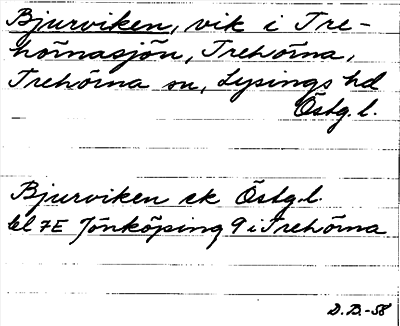 Bjurviken, vik i Tre-
hörnasjön, Trehörna,
Trehörna sn, Lysings hd
Östg. l.
Bjurviken ek Östg. l.
bl 7E Jönköping 9 i Trehörna
D.B.-58